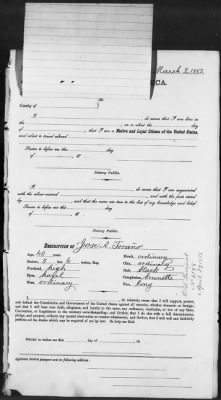 March 2, 1882.
CA.
County of
I, do swear that I was born in
the on or about the day
of , that I am a Native and Loyal Citizen of the United States,
and about to travel abroad
Sworn to before me this day
of , 18
Notary Public.
I, do swear that I am acquainted
with the above-named and with the facts stated
by and that the same are true to the best of my knowledge and belief.
Sworn to before me this day
of , 18
Notary Public.
DESCRIPTION OF Jose A. Toraño
Age: 40 Mouth: ordinary
Stature: 5 6 inches, Eng. Chin: ordinary
Forehead: high Hair: black
Eyes: hazel Complexion: brunette
Nose: ordinary Face: long
I, do solemnly swear that I will support, protect,
and defend the Constitution and Government of the United States against all enemies, whether domestic or foreign;
and that I will bear true faith, allegiance, and loyalty to the same, any ordinance, resolution, or law of any State,
Convention, or Legislature to the contrary notwithstanding; and further, that I do this with a full determination,
pledge, and purpose, without any mental reservation or evasion whatsoever; and further, that I will well and faithfully
perform all the duties which may be required of me by law: So help me God.
Sworn to before me this day of , 18
Applicant desires passport sent to following address: